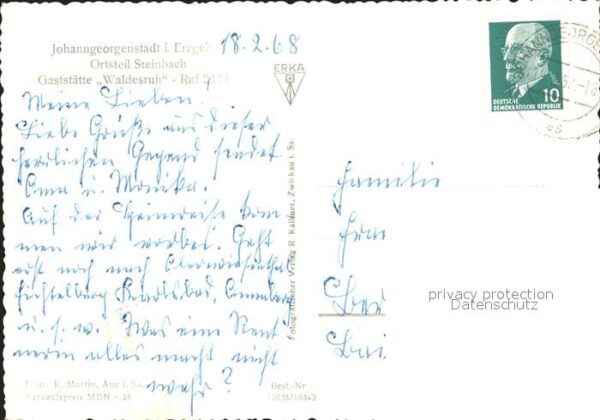 Johanngeorgenstadt i. Erzgeb
18.2.68
Ortsteil Steinbach
Gaststätte „Waldesruh" - Ruf 2121
ERKA
Meine Lieben!
Liebe Grüße aus dieser
herrlichen Gegend sendet
Oma u. Monika.
Auf der Heimreise kom
men wir vorbei. Geht
erst noch nach Oberwiesenthal
Fichtelberg Karlsbad, Annaberg
u. s. w. Was eine Rent
nerin alles macht nicht
wahr?
Foto: R. Martin, Aue i. Sa.
Verkaufspreis MDN -,25
Best.-Nr
Fotografischer Verlag R. Kallmer, Zwickau i. Sa.
10
DEUTSCHE
DEMOKRATISCHE REPUBLIK
Familie
privacy protection
Datenschutz